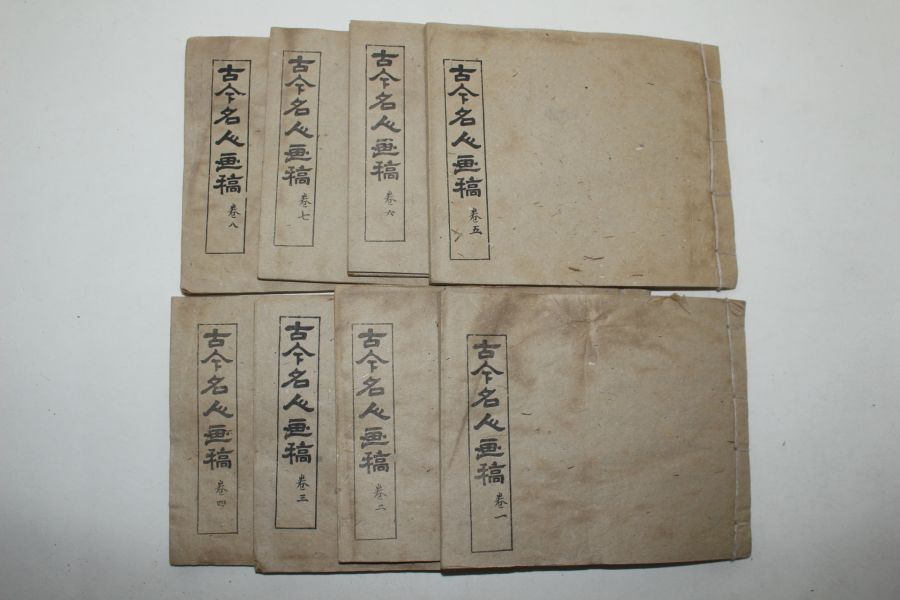 古今名人画稿 卷八
古今名人画稿 卷七
古今名人画稿 卷六
古今名人画稿 卷五
古今名人画稿 卷四
古今名人画稿 卷三
古今名人画稿 卷二
古今名人画稿 卷一